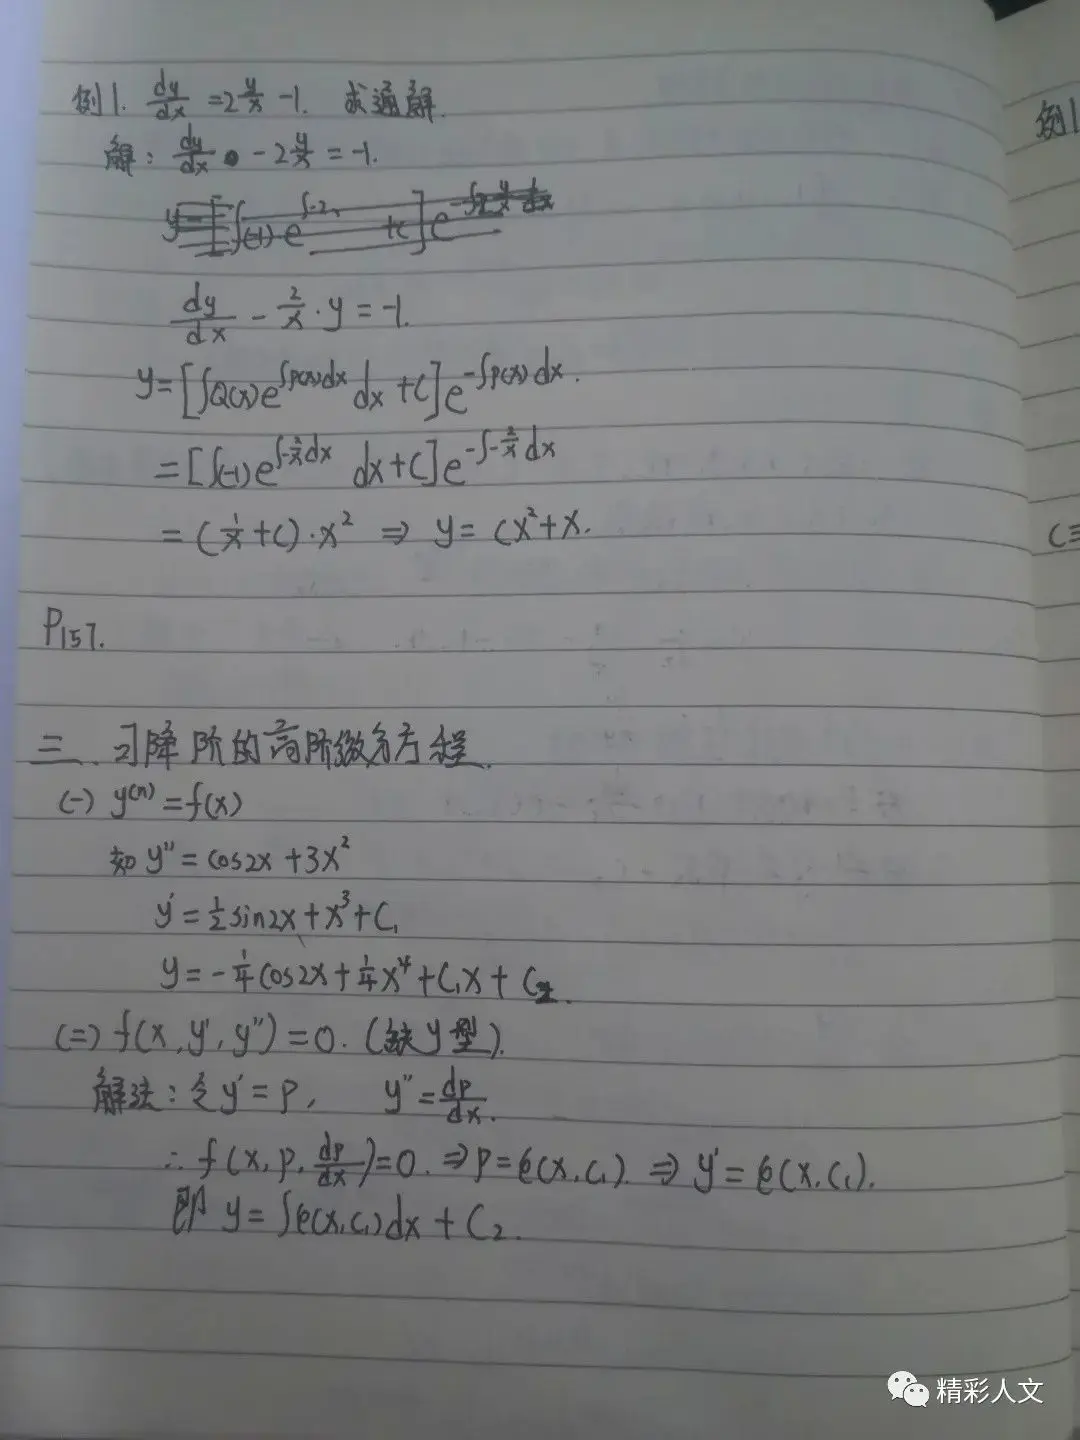 例1. dy/dx = 2 y/x - 1. 求通解.
解: dy/dx - 2 y/x = -1.
dy/dx - 2/x · y = -1.
y = [∫Q(x)e^{∫P(x)dx} dx + C]e^{-∫P(x)dx}.
= [∫(-1)e^{∫-2/x dx} dx + C]e^{-∫-2/x dx}
= (1/x + C)·x² ⇒ y = Cx² + x.
P157.
三、可降阶的高阶微分方程.
(一) y^(n) = f(x)
如 y'' = cos2x + 3x²
y' = 1/2 sin2x + x³ + C₁
y = -1/4 cos2x + 1/4 x⁴ + C₁x + C₂.
(二) f(x, y', y'') = 0. (缺y型).
解法: 令 y' = P, y'' = dp/dx.
∴ f(x, p, dp/dx) = 0. ⇒ P = φ(x, C₁). ⇒ y' = φ(x, C₁).
即 y = ∫φ(x, C₁)dx + C₂.
例1
(三
精彩人文